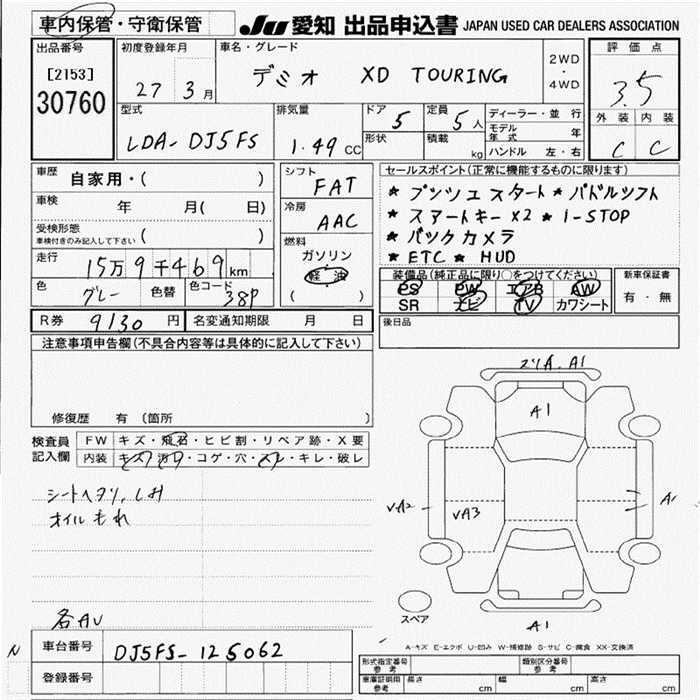 車内保管・守衛保管 JU 愛知 出品申込書 JAPAN USED CAR DEALERS ASSOCIATION
出品番号 初度登録年月 車名・グレード 2WD・4WD 評価点
[2153] 27 3月 デミオ XD TOURING 3.5
30760
型式 排気量 ドア 定員 ディーラー・並行 外装 内装
LDA-DJ5FS 1.49CC 5 5人 モデル年式 年 C C
形状 積載 kg ハンドル 左・右
車歴 自家用・( ) シフト FAT セールスポイント(正常に機能するものに限ります)
車検 年 月( 日) 冷房 AAC ★プッシュスタート★パドルシフト
受検形態 ( ) ★スマートキーx2 ★i-STOP
車検付きのみ記入して下さい 燃料 ★バックカメラ
走行 15万9千469km ガソリン ★ETC ★HUD
色 グレー 色替 色コード 38P 軽油 ( )
装備品(純正品に限り○をつけてください) 新車保証書
PS PW エアB AW 有・無
SR ナビ TV カワシート
R券 9130円 名変通知期限 月 日 後日品
注意事項申告欄(不具合内容等は具体的に記入して下さい)
修復歴 有 (箇所 )
検査員記入欄 FW キズ・飛石・ヒビ割・リペア跡・X要
内装 キズ・汚れ・コゲ・穴・スレ・キレ・破レ
シートヘタリ,しみ
オイルもれ
A1
A1
A1
VA2
VA3
A1
スペア
A1
各AU
A-キズ E-エクボ U-凹み W-補修跡 S-サビ C-腐食 XX-交換済
N 車台番号 DJ5FS-125062
登録番号
形式指定番号 参考 類別区分番号 参考
車庫証明用 参考 長さ cm 幅 cm 高さ cm